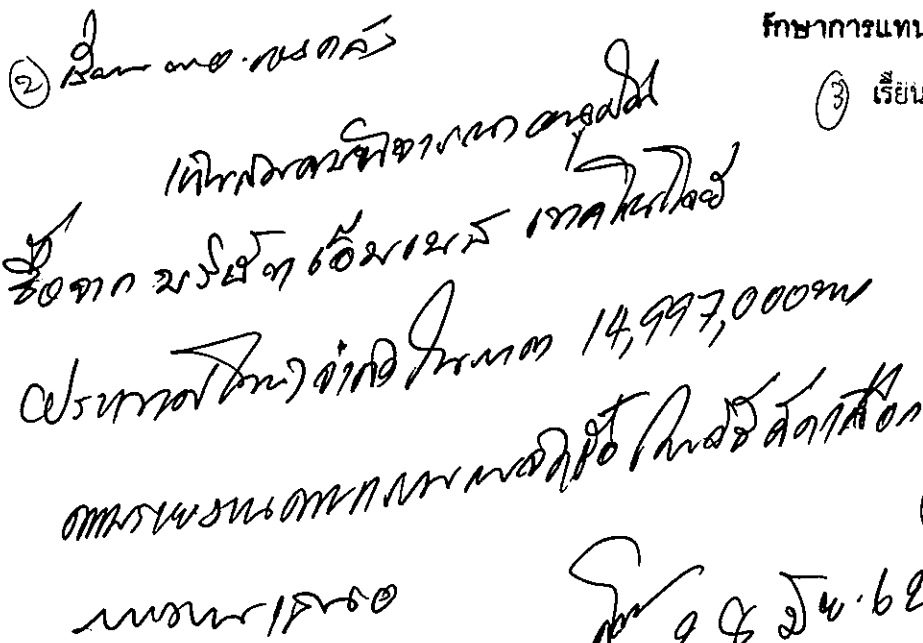 รักษาการแทน
② เรียน ผอ.กองคลัง
③ เรียน
เห็นควรพิจารณาอนุมัติ
ซื้อจาก บริษัท เอ็มเบส เทคโนโลยี
(ประเทศไทย) จำกัด ในราคา 14,997,000 บาท
ตามรายงาน จัดซื้อ โดยวิธีคัดเลือก
เสนอ